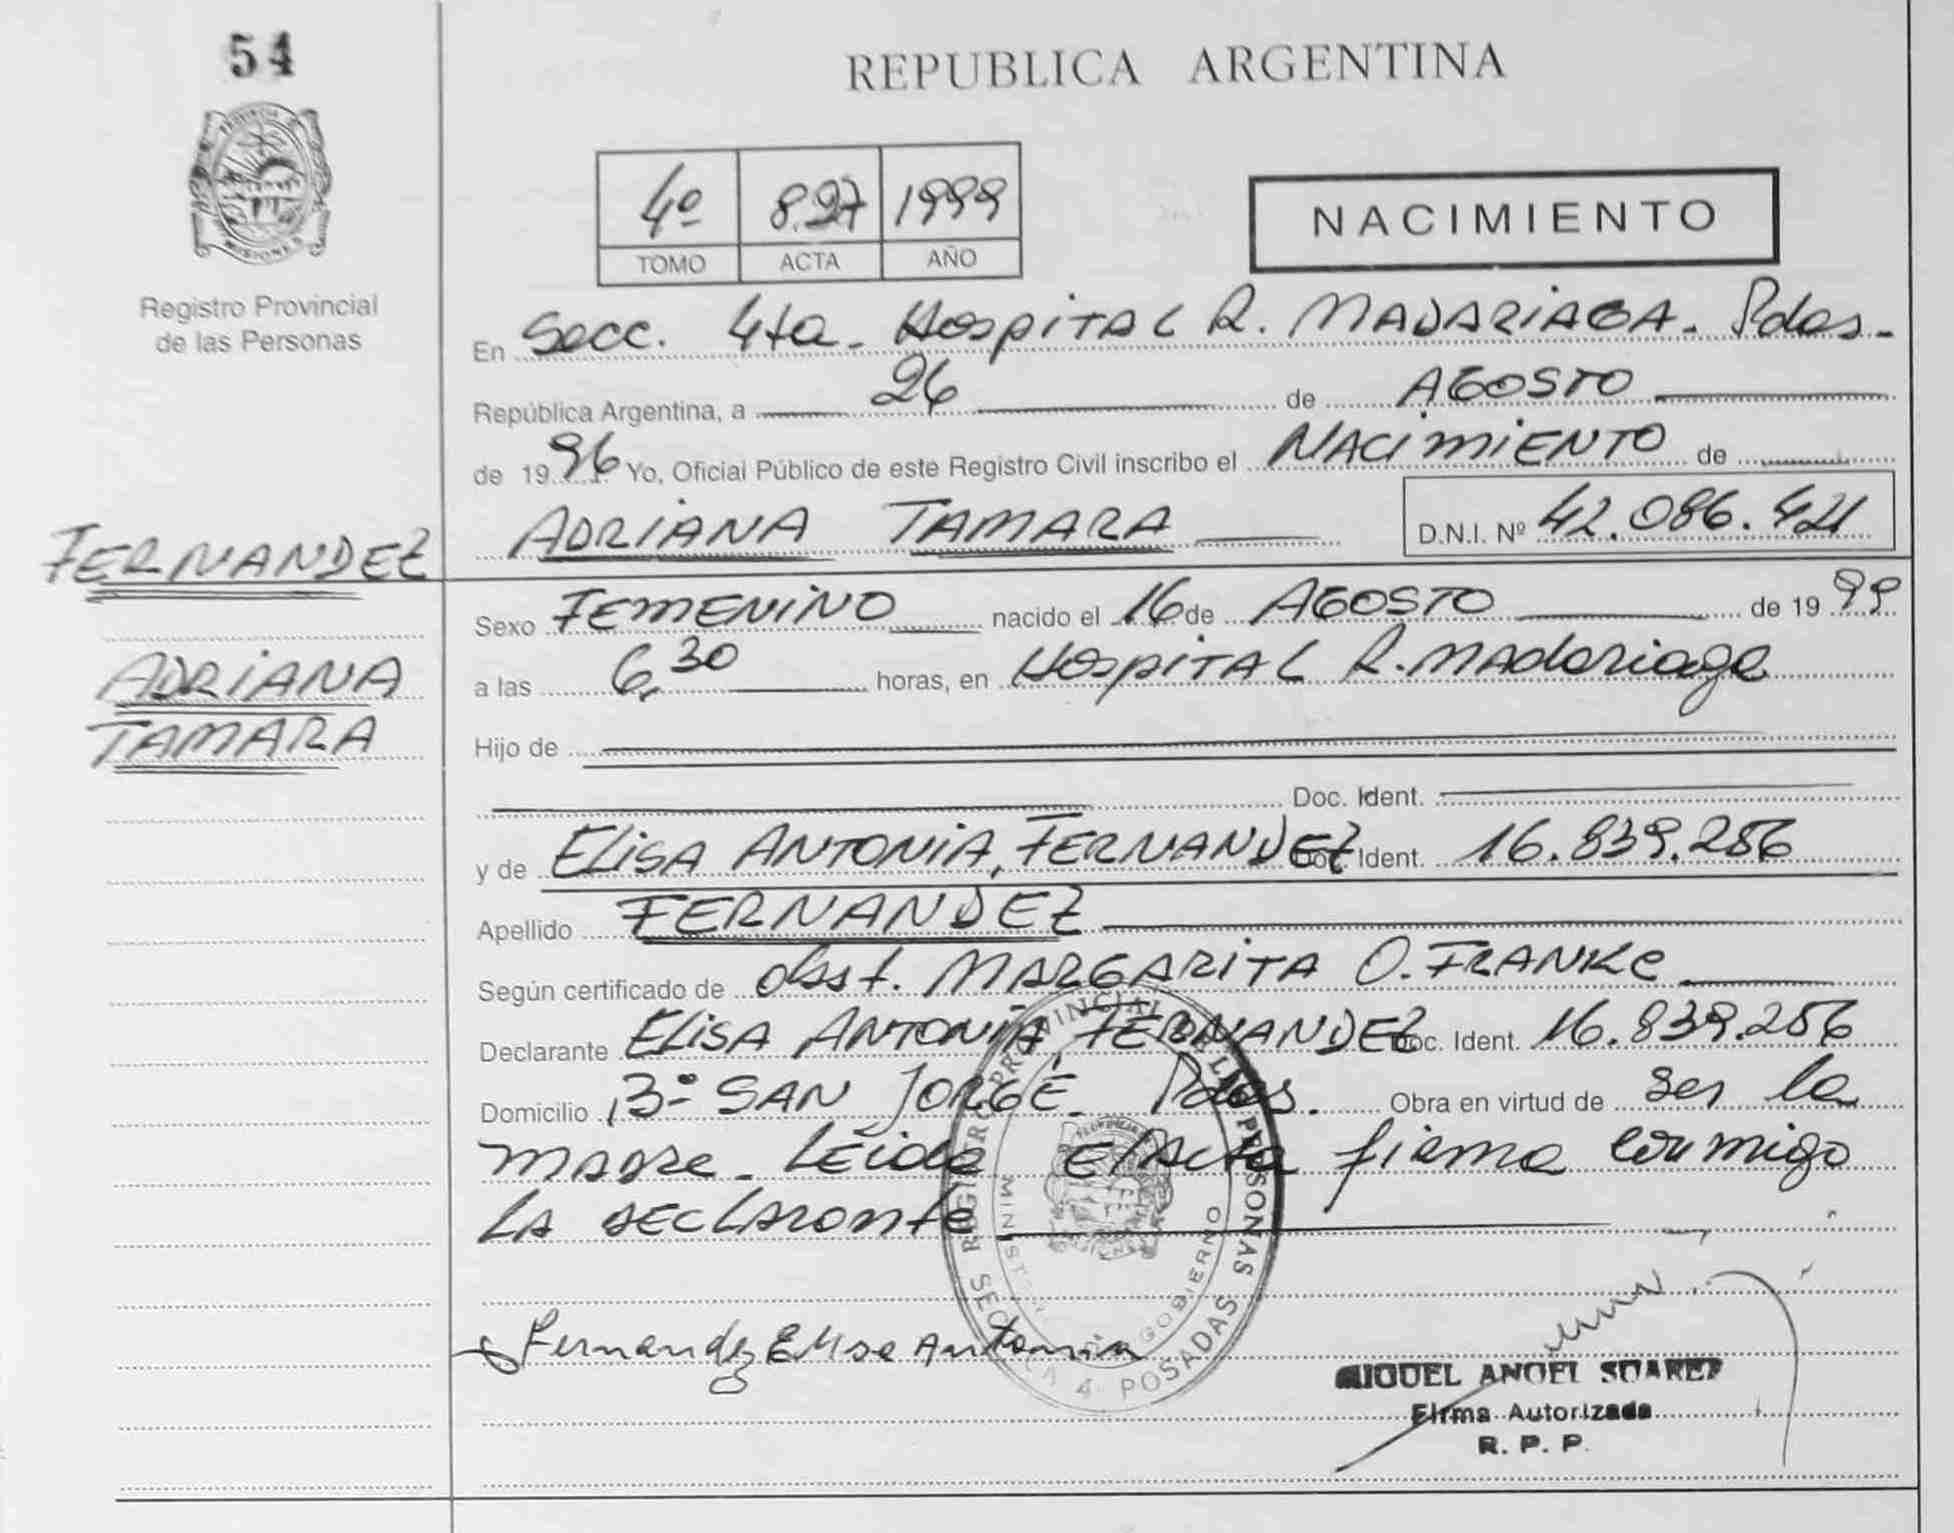 54
REPUBLICA ARGENTINA
PROVINCIA DE
MISIONES
Registro Provincial
de las Personas
4º 827 1999
TOMO ACTA AÑO
NACIMIENTO
En Secc. 4ta. Hospital R. MADARIAGA. Pdas.
República Argentina, a 26 de AGOSTO
de 1996 Yo, Oficial Público de este Registro Civil inscribo el NACIMIENTO de
ADRIANA TAMARA D.N.I. Nº 42.086.421
FERNANDEZ
ADRIANA
TAMARA
Sexo FEMENINO nacido el 16 de AGOSTO de 1999
a las 6,30 horas, en HOSPITAL R. MADARIAGA
Hijo de
Doc. Ident.
y de ELISA ANTONIA, FERNANDEZ Doc. Ident. 16.839.256
Apellido FERNANDEZ
Según certificado de obst. MARGARITA O. FRANKE
Declarante ELISA ANTONIA, FERNANDEZ Doc. Ident. 16.839.256
Domicilio B° SAN JORGE. Pdas. Obra en virtud de ser la
madre. Leída el Acta firma conmigo
LA DECLARANTE
REGISTRO PROVINCIAL DE LAS PERSONAS
SECC LA 4 POSADAS
GOBIERNO
Fernandez Elisa Antonia
MIGUEL ANGEL SUAREZ
Firma Autorizada
R. P. P.